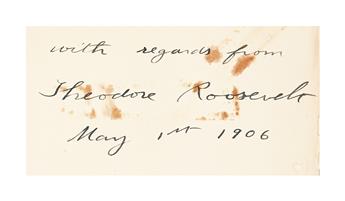 with regards from
Theodore Roosevelt
May 1st 1906